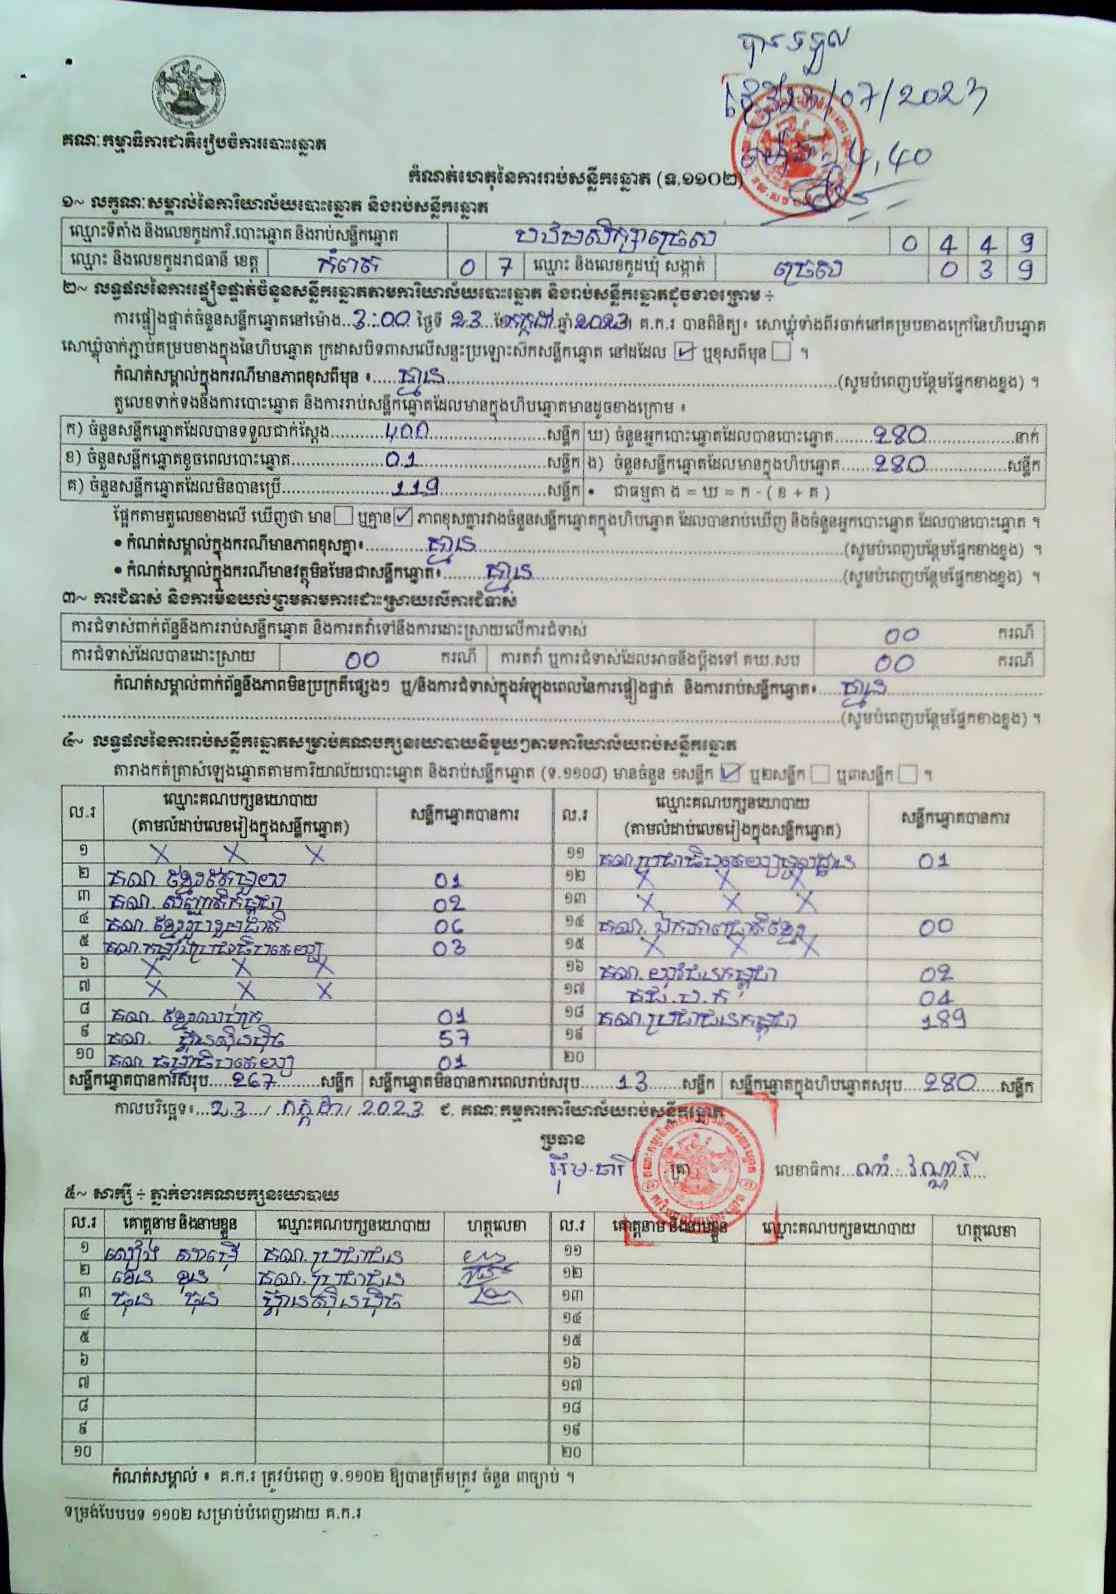 បានទទួល
/07/2023
4,40
គណៈកម្មាធិការជាតិរៀបចំការបោះឆ្នោត
កំណត់ហេតុនៃការរាប់សន្លឹកឆ្នោត (ទ.១១០២)
១~ លក្ខណៈសម្គាល់នៃការិយាល័យបោះឆ្នោត និងរាប់សន្លឹកឆ្នោត
ឈ្មោះទីតាំង និងលេខកូដការិ.បោះឆ្នោត និងរាប់សន្លឹកឆ្នោត 0 4 4 9
ឈ្មោះ និងលេខកូដរាជធានី ខេត្ត កំពត 0 7 ឈ្មោះ និងលេខកូដឃុំ សង្កាត់ 0 3 9
២~ លទ្ធផលនៃការផ្ទៀងផ្ទាត់ចំនួនសន្លឹកឆ្នោតតាមការិយាល័យបោះឆ្នោត និងរាប់សន្លឹកឆ្នោតដូចខាងក្រោម ÷
ការផ្ទៀងផ្ទាត់ចំនួនសន្លឹកឆ្នោតនៅម៉ោង..3:00 ថ្ងៃទី 23 ខែកក្កដា ឆ្នាំ 2023 គ.ក.រ បានពិនិត្យ៖ សោឃ្លុំទាំងពីរចាក់នៅគម្របខាងក្រៅនៃហិបឆ្នោត
សោឃ្លុំចាក់ភ្ជាប់គម្របខាងក្នុងនៃហិបឆ្នោត ក្រដាសបិទពាសលើសន្ទះប្រឡោះស៊កសន្លឹកឆ្នោត នៅដដែល ☑ ឬខុសពីមុន ☐ ។
កំណត់សម្គាល់ក្នុងករណីមានភាពខុសពីមុន ៖ គ្មាន (សូមបំពេញបន្ថែមផ្នែកខាងខ្នង) ។
តួលេខទាក់ទងនឹងការបោះឆ្នោត និងការរាប់សន្លឹកឆ្នោតដែលមានក្នុងហិបឆ្នោតមានដូចខាងក្រោម ៖
ក) ចំនួនសន្លឹកឆ្នោតដែលបានទទួលជាក់ស្តែង 400 សន្លឹក ឃ) ចំនួនអ្នកបោះឆ្នោតដែលបានបោះឆ្នោត 280 នាក់
ខ) ចំនួនសន្លឹកឆ្នោតខូចពេលបោះឆ្នោត 01 សន្លឹក ង) ចំនួនសន្លឹកឆ្នោតដែលមានក្នុងហិបឆ្នោត 280 សន្លឹក
គ) ចំនួនសន្លឹកឆ្នោតដែលមិនបានប្រើ 119 សន្លឹក • ជាធម្មតា ង = ឃ = ក - ( ខ + គ )
ផ្អែកតាមតួលេខខាងលើ ឃើញថា មាន ☐ ឬគ្មាន ☑ ភាពខុសគ្នារវាងចំនួនសន្លឹកឆ្នោតក្នុងហិបឆ្នោត ដែលបានរាប់ឃើញ និងចំនួនអ្នកបោះឆ្នោត ដែលបានបោះឆ្នោត ។
• កំណត់សម្គាល់ក្នុងករណីមានភាពខុសគ្នា៖ គ្មាន (សូមបំពេញបន្ថែមផ្នែកខាងខ្នង) ។
• កំណត់សម្គាល់ក្នុងករណីមានវត្ថុមិនមែនជាសន្លឹកឆ្នោត៖ គ្មាន (សូមបំពេញបន្ថែមផ្នែកខាងខ្នង) ។
៣~ ការជំទាស់ និងការមិនយល់ព្រមតាមការដោះស្រាយលើការជំទាស់
ការជំទាស់ពាក់ព័ន្ធនឹងការរាប់សន្លឹកឆ្នោត និងការតវ៉ាទៅនឹងការដោះស្រាយលើការជំទាស់ 00 ករណី
ការជំទាស់ដែលបានដោះស្រាយ 00 ករណី ការតវ៉ា ឬការជំទាស់ដែលអាចនឹងប្តឹងទៅ គឃ.សប 00 ករណី
កំណត់សម្គាល់ពាក់ព័ន្ធនឹងភាពមិនប្រក្រតីផ្សេងៗ ឬ/និងការជំទាស់ក្នុងអំឡុងពេលនៃការផ្ទៀងផ្ទាត់ និងការរាប់សន្លឹកឆ្នោត៖ គ្មាន
(សូមបំពេញបន្ថែមផ្នែកខាងខ្នង) ។
៤~ លទ្ធផលនៃការរាប់សន្លឹកឆ្នោតសម្រាប់គណបក្សនយោបាយនីមួយៗតាមការិយាល័យរាប់សន្លឹកឆ្នោត
តារាងកត់ត្រាសំឡេងឆ្នោតតាមការិយាល័យបោះឆ្នោត និងរាប់សន្លឹកឆ្នោត (ទ.១១០៨) មានចំនួន ១សន្លឹក ☑ ឬ២សន្លឹក ☐ ឬ៣សន្លឹក ☐ ។
ល.រ ឈ្មោះគណបក្សនយោបាយ (តាមលំដាប់លេខរៀងក្នុងសន្លឹកឆ្នោត) សន្លឹកឆ្នោតបានការ ល.រ ឈ្មោះគណបក្សនយោបាយ (តាមលំដាប់លេខរៀងក្នុងសន្លឹកឆ្នោត) សន្លឹកឆ្នោតបានការ
១ X X X ១១ 01
២ 01 ១២ X X X
៣ 02 ១៣ X X X
៤ គណ.ខ្មែររួបរួមជាតិ 06 ១៤ គណ.ឯកភាពជាតិខ្មែរ 00
៥ 03 ១៥ X X X
៦ X X X ១៦ គណ.យុវជនកម្ពុជា 02
៧ X X X ១៧ 04
៨ គណ. 01 ១៨ គណ.ប្រជាជនកម្ពុជា 189
៩ គណ. ហ្វ៊ុនស៊ិនប៉ិច 57 ១៩
១០ 01 ២០
សន្លឹកឆ្នោតបានការសរុប 267 សន្លឹក សន្លឹកឆ្នោតមិនបានការពេលរាប់សរុប 13 សន្លឹក សន្លឹកឆ្នោតក្នុងហិបឆ្នោតសរុប 280 សន្លឹក
កាលបរិច្ឆេទ៖ 23 / កក្កដា / 2023 ជ. គណៈកម្មការការិយាល័យរាប់សន្លឹកឆ្នោត
ប្រធាន
ត្រា លេខាធិការ
៥~ សាក្សី ÷ ភ្នាក់ងារគណបក្សនយោបាយ
ល.រ គោត្តនាម និងនាមខ្លួន ឈ្មោះគណបក្សនយោបាយ ហត្ថលេខា ល.រ គោត្តនាម និងនាមខ្លួន ឈ្មោះគណបក្សនយោបាយ ហត្ថលេខា
១ គណ.ប្រជាជន ១១
២ គណ.ប្រជាជន ១២
៣ ហ្វ៊ុនស៊ិនប៉ិច ១៣
៤ ១៤
៥ ១៥
៦ ១៦
៧ ១៧
៨ ១៨
៩ ១៩
១០ ២០
កំណត់សម្គាល់ ៖ គ.ក.រ ត្រូវបំពេញ ទ.១១០២ ឱ្យបានត្រឹមត្រូវ ចំនួន ៣ច្បាប់ ។
ទម្រង់បែបបទ ១១០២ សម្រាប់បំពេញដោយ គ.ក.រ